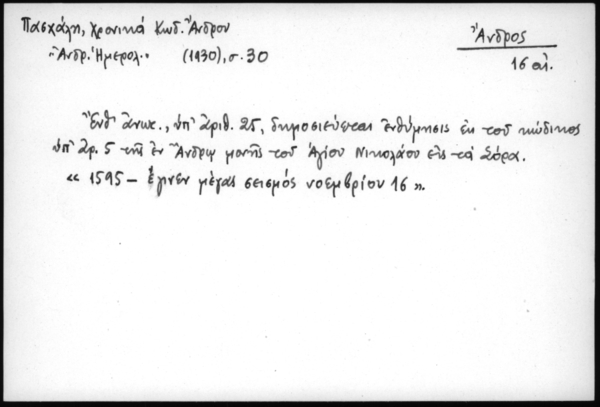 Πασχάλη, χρονικά Κωδ. Ἄνδρου
"Ἀνδρ. Ἡμερολ." (1930), σ. 30
Ἄνδρος
16 αἰ.
Ἔνθ' ἄνωτ., ὑπ' ἀριθ. 25, δημοσιεύεται ἐνθύμησις ἐκ τοῦ κώδικος
ὑπ' ἀρ. 5 τῆς ἐν Ἄνδρῳ μονῆς τοῦ Ἁγίου Νικολάου εἰς τὰ Σόρα.
« 1595 – ἔγινεν μέγας σεισμός νοεμβρίου 16 ».